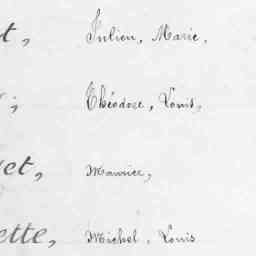 t, Julien, Marie,
, Théodore, Louis,
et, Maurice,
ette, Michel, Louis